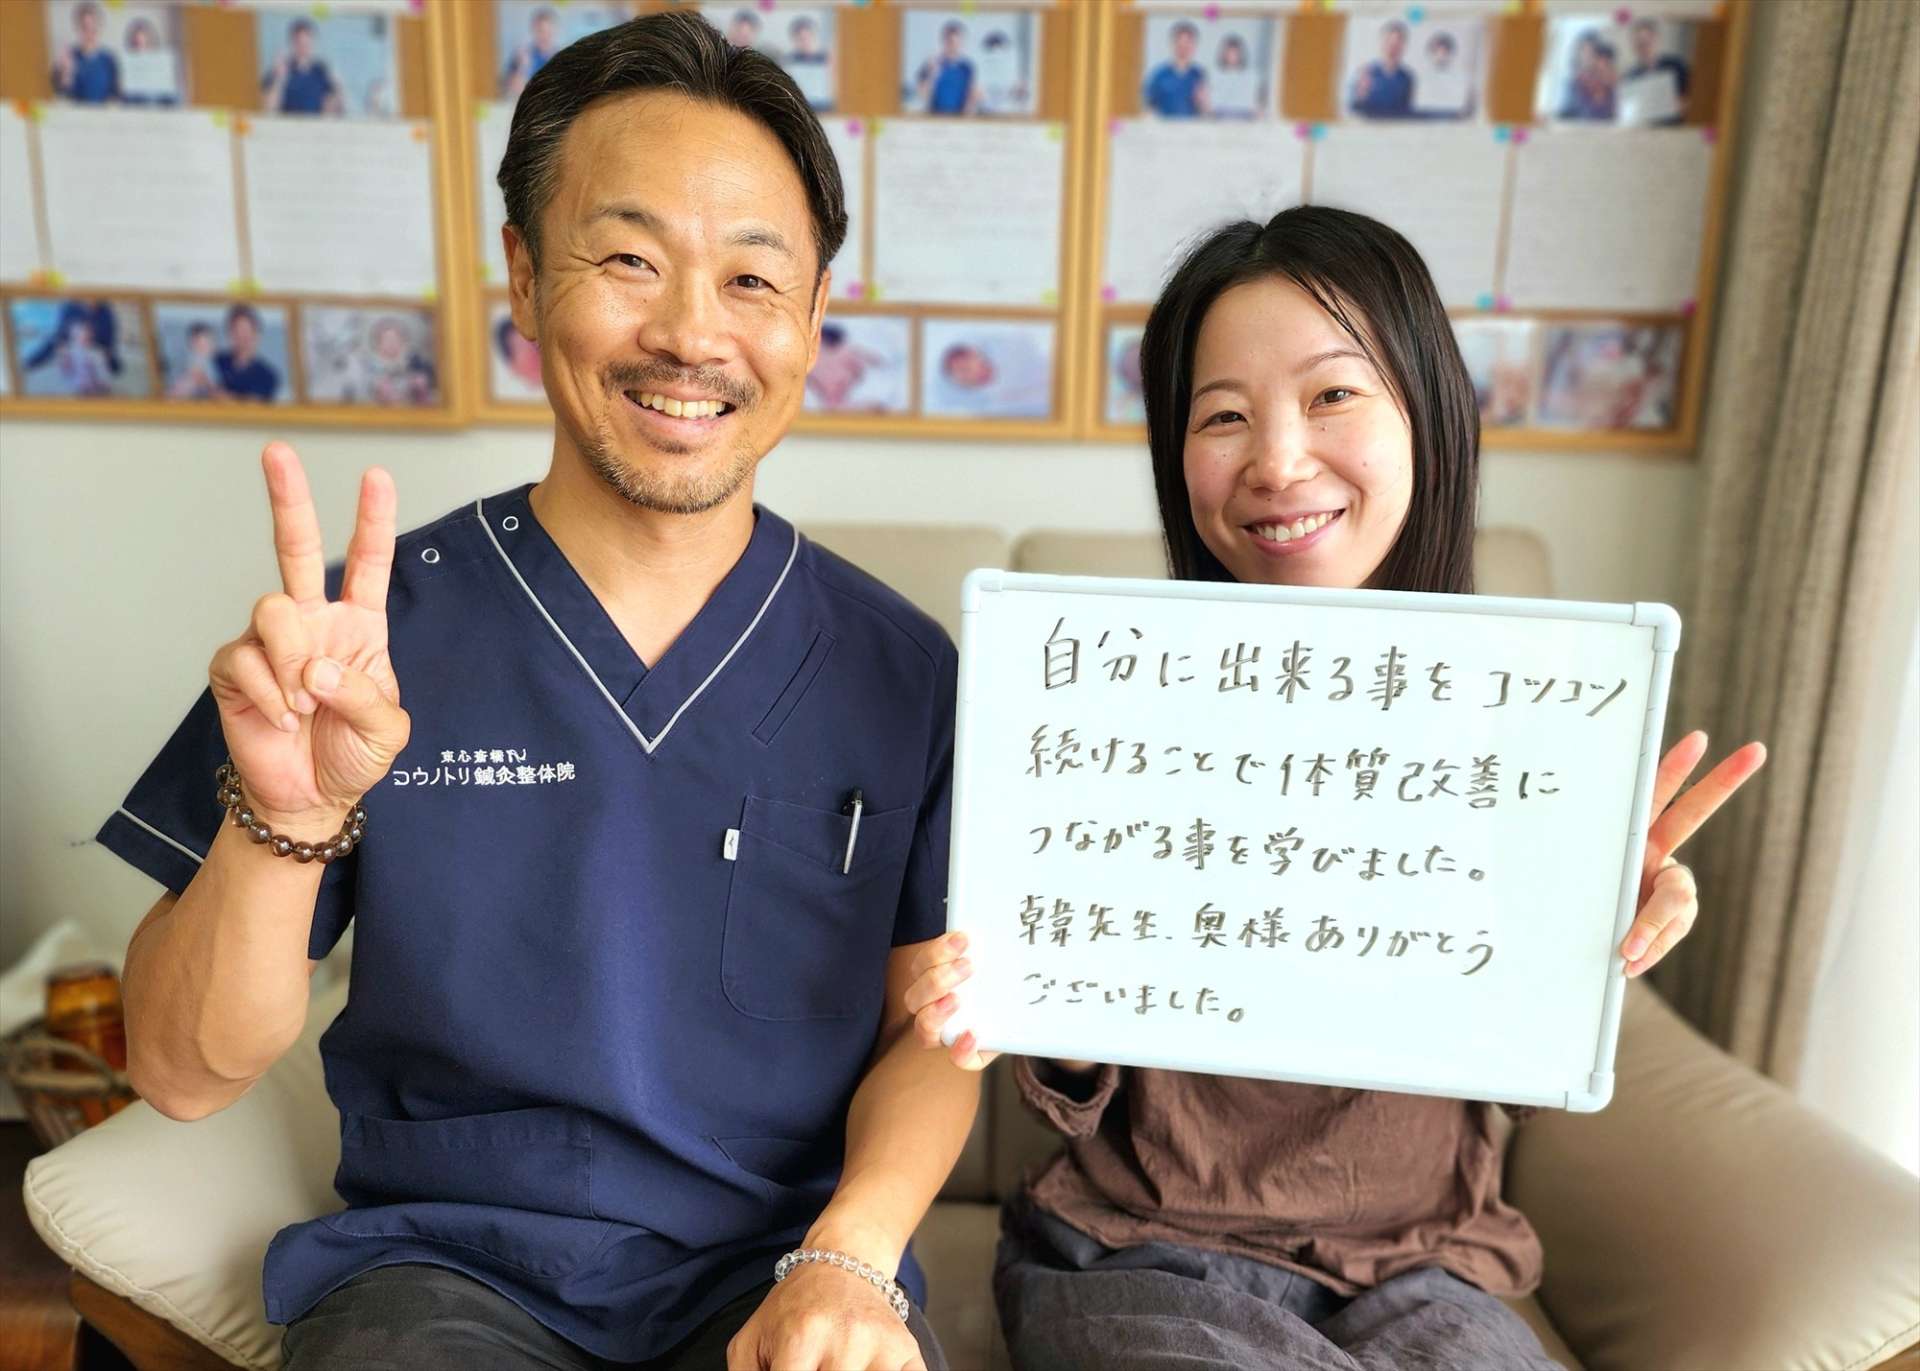 東心斎橋
コウノトリ鍼灸整体院
自分に出来る事をコツコツ
続けることで体質改善に
つながる事を学びました。
韓先生、奥様ありがとう
ございました。